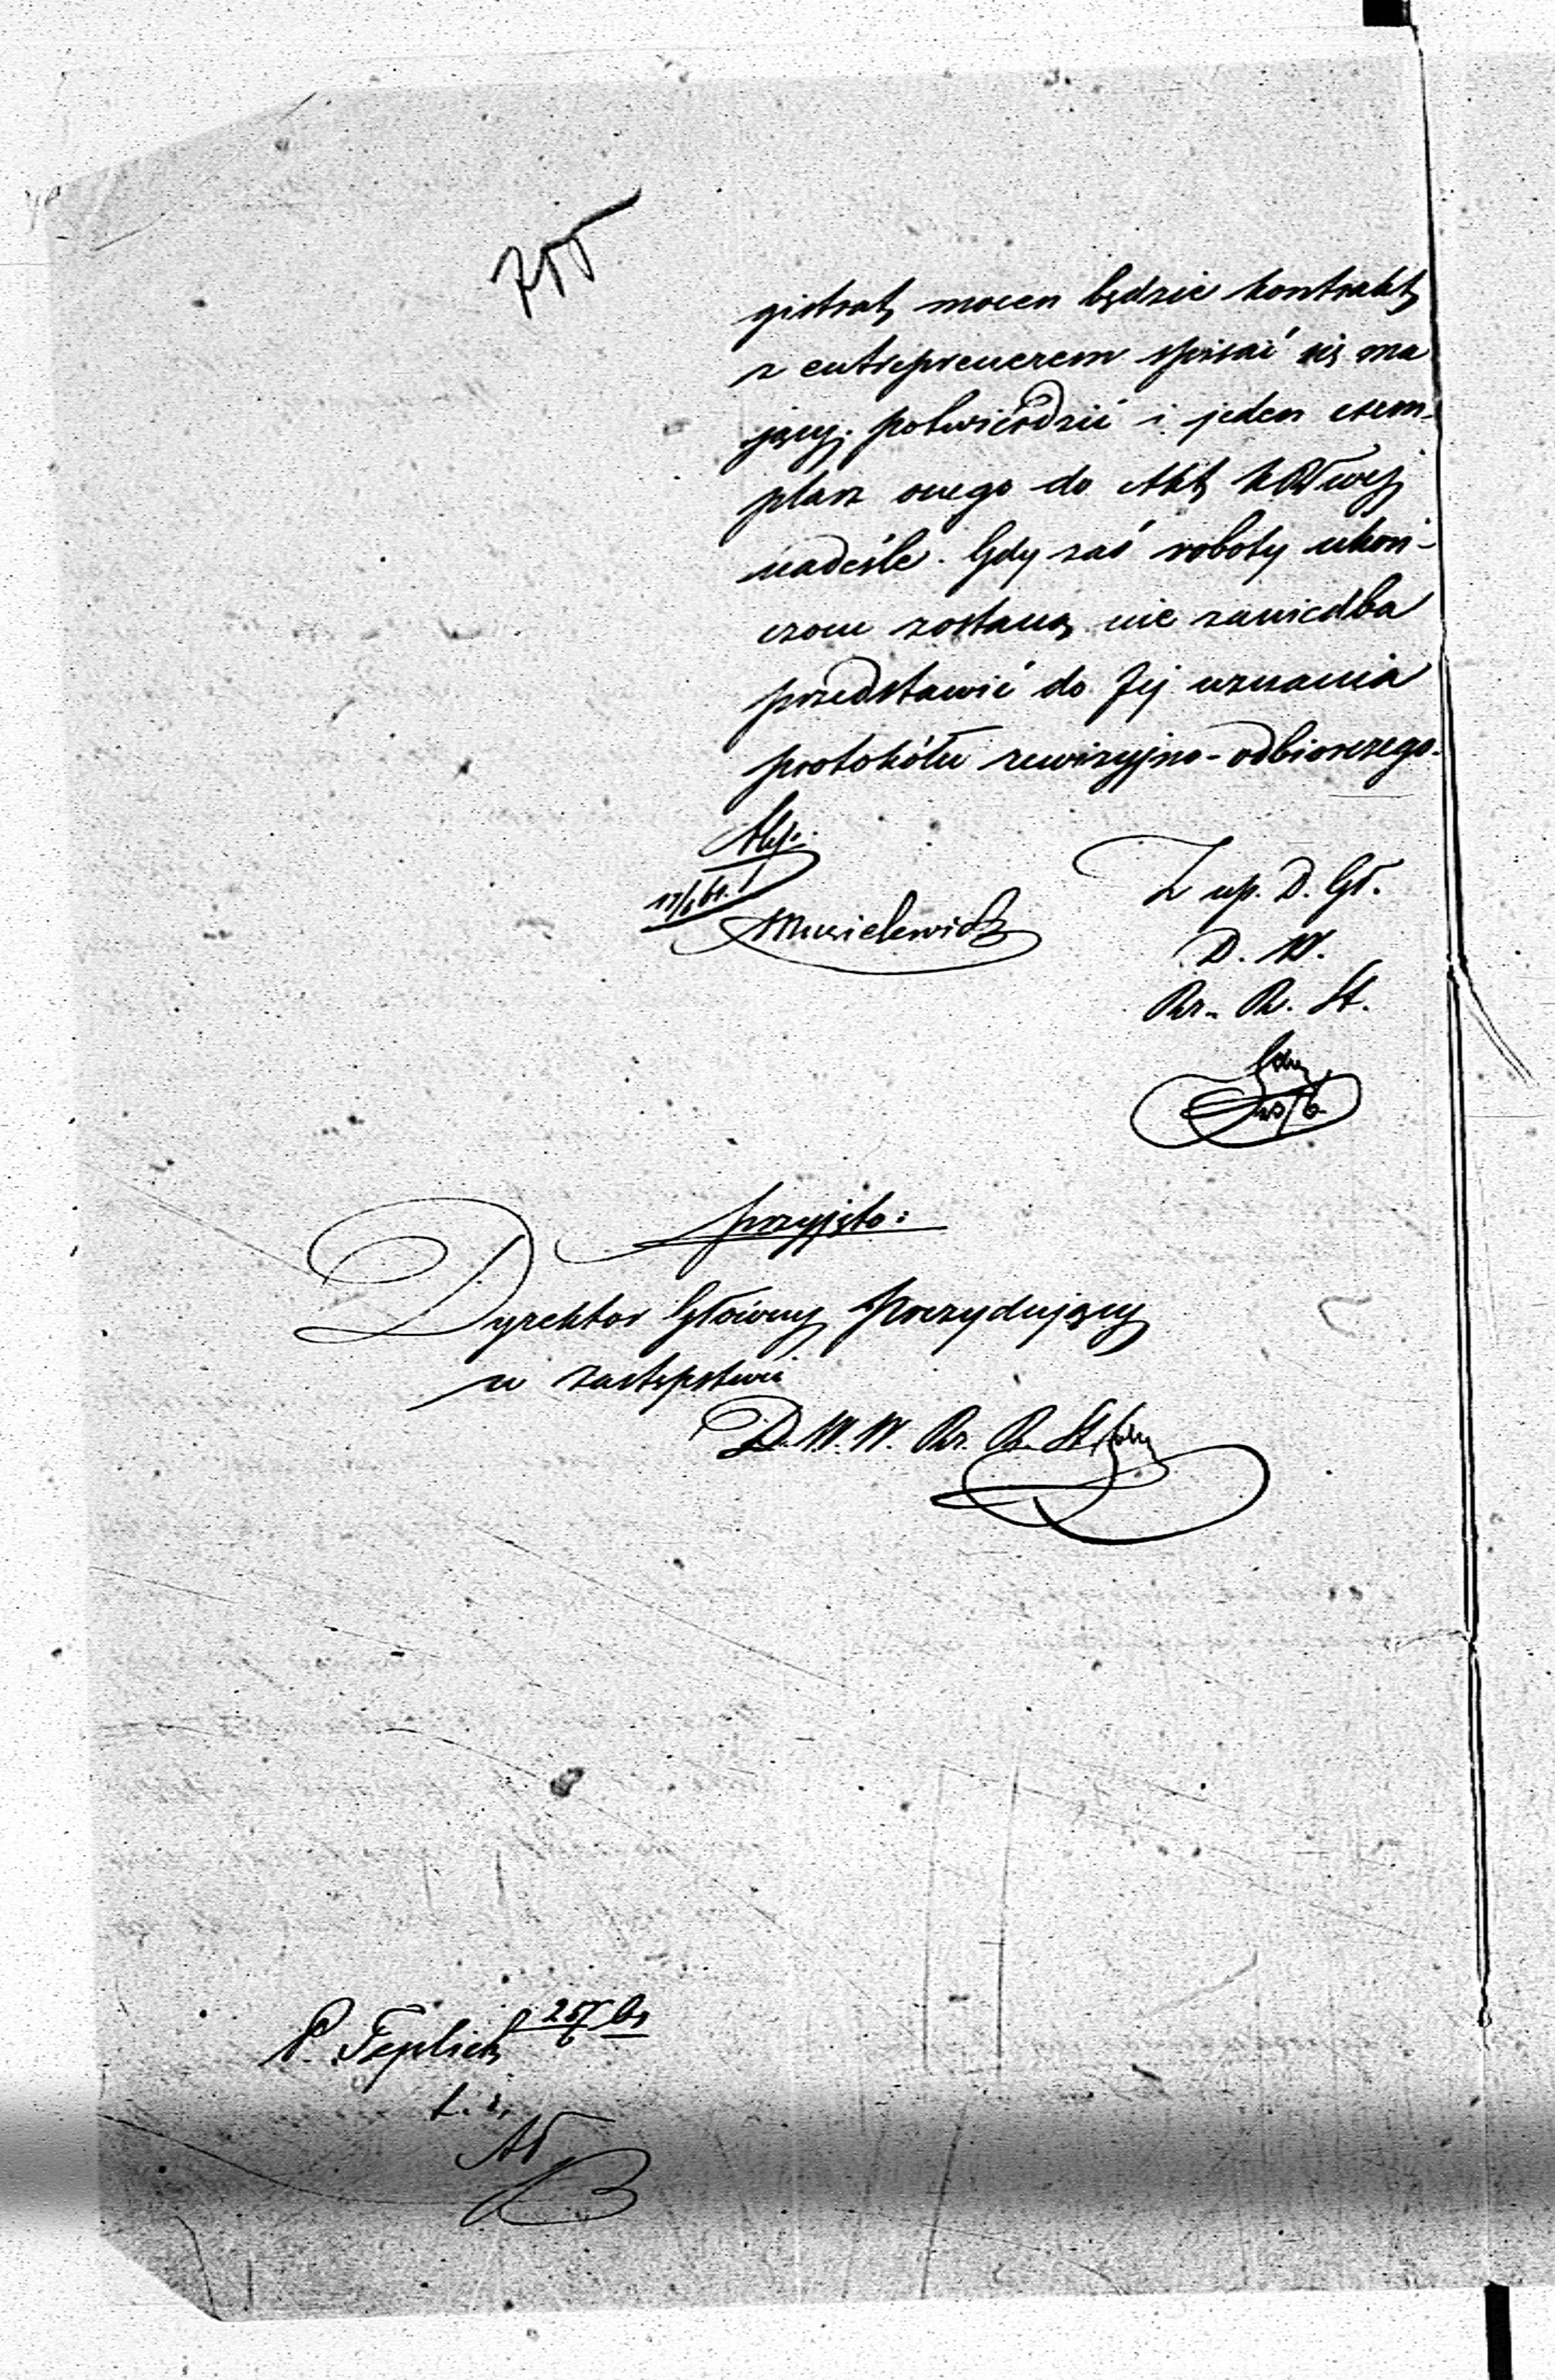 755
gistrat mocen będzie kontrakt
z entreprenerem spisać się ma
jący. potwiérdzić i jeden exem-
plarz onego do Akt KRłwej
nadeśle. Gdy zaś roboty ukoń-
czone zostaną nie zaniedba
przedstawić do Jej uznania
protokółu rewizyjno-odbiorczego.
Z up. D. Gł.
D. W.
Rz. R. St.
przyjęto:
Dyrektor Główny Prezydujący
w zastępstwie
D. W. W. Rz. R. St.
P. Teplich